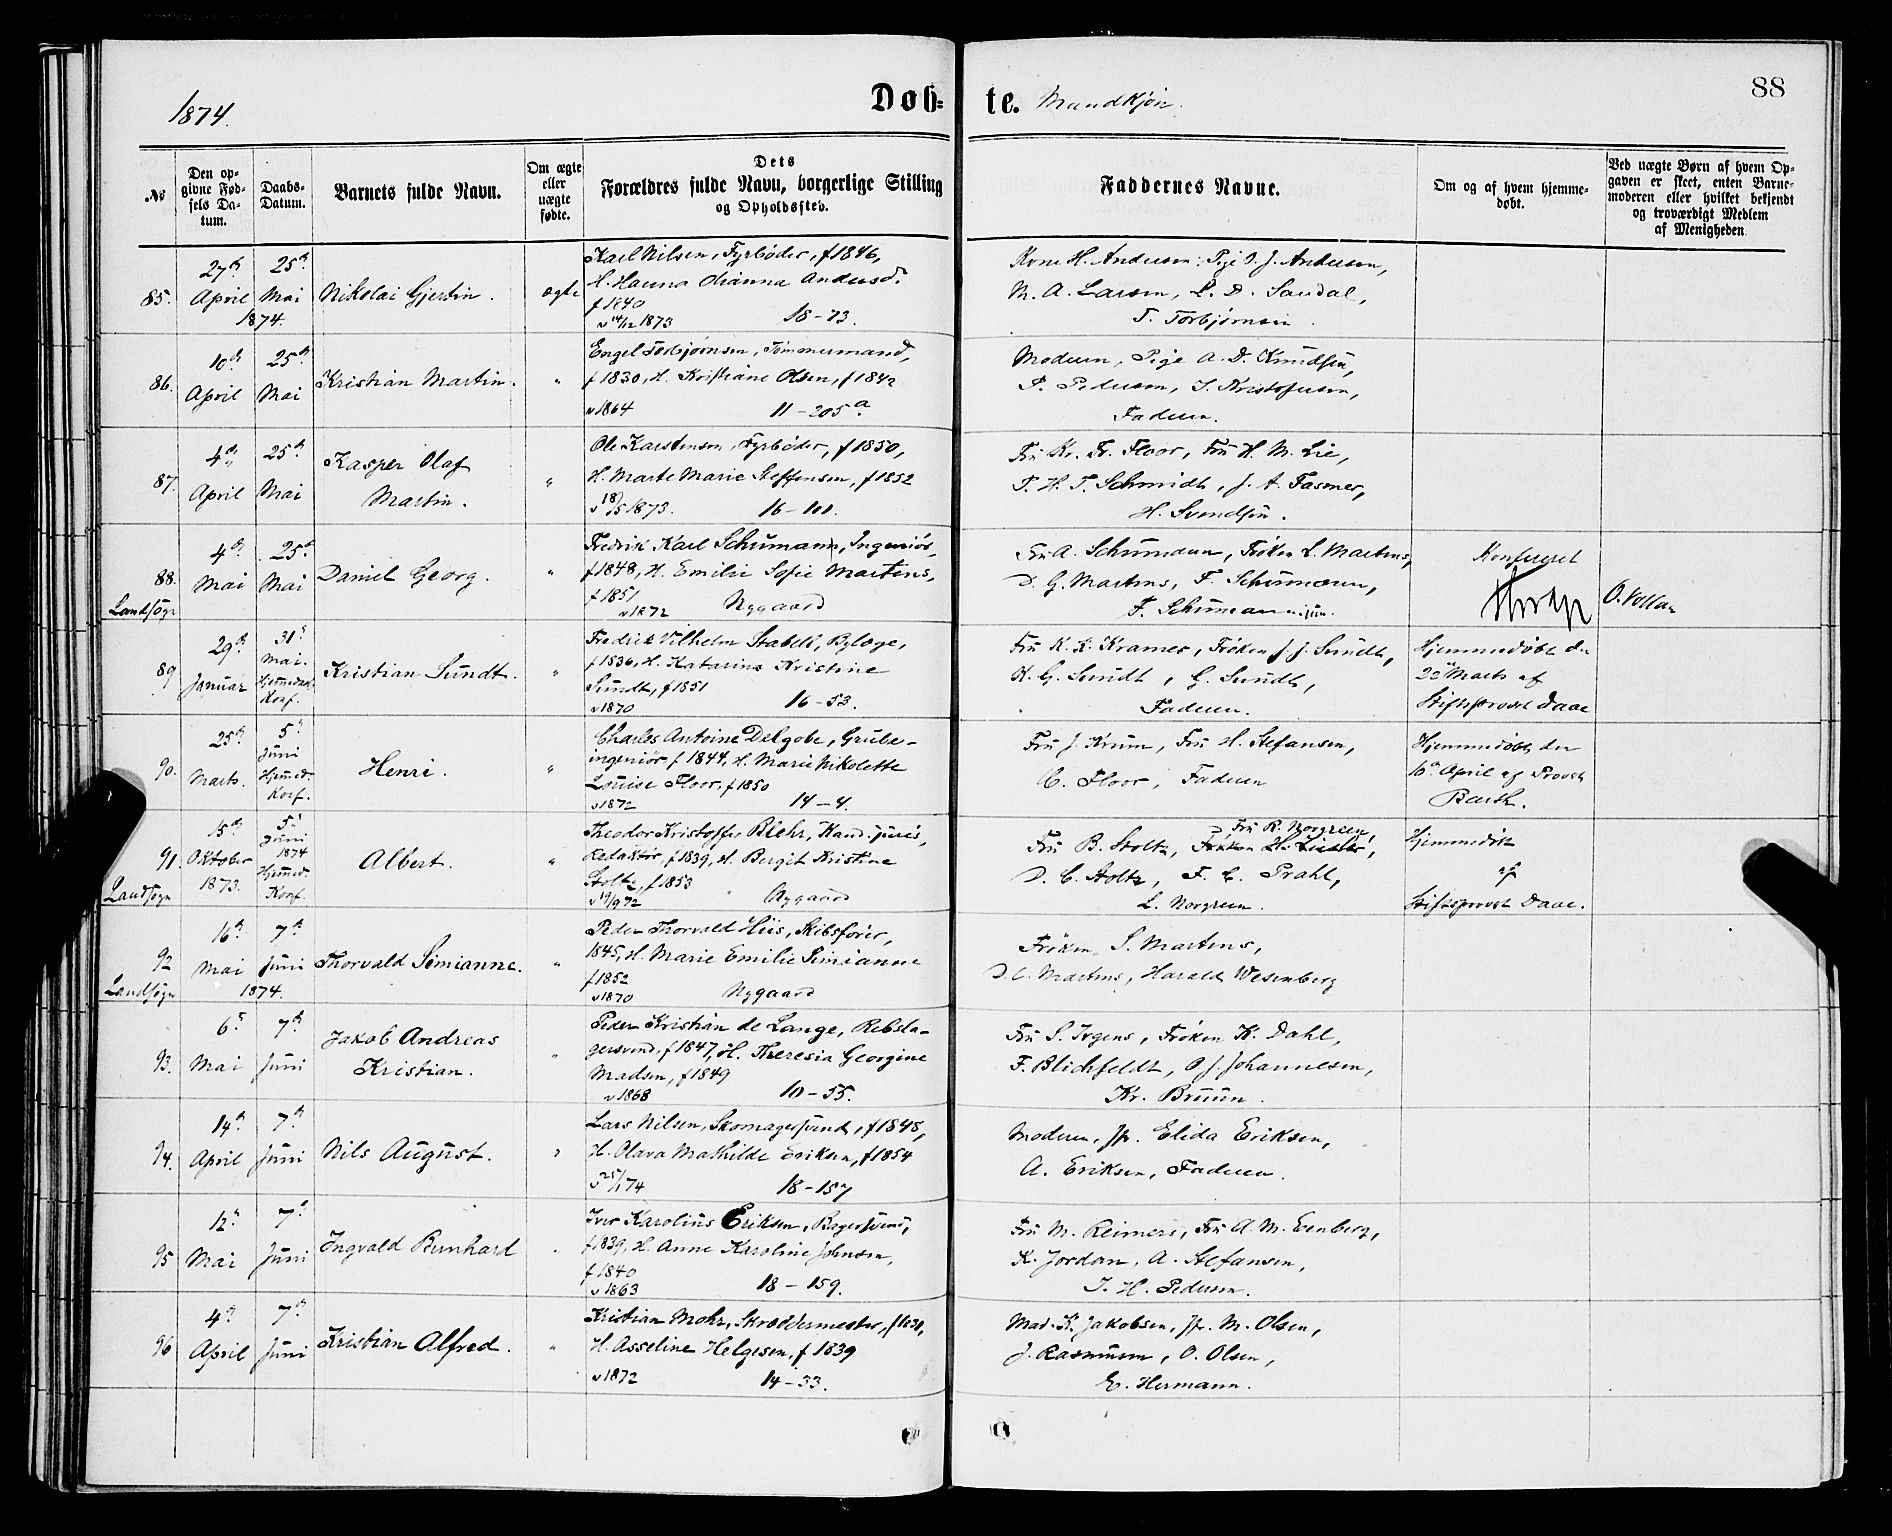 1874.
Døb=
te. Mandkjøn.
88
No
Den opgivne Fødsels Datum.
Daabs-Datum.
Barnets fulde Navn.
Om ægte eller uægte fødte.
Dets
Forældres fulde Navn, borgerlige Stilling
og Opholdssted.
Faddernes Navne.
Om og af hvem hjemmedøbt.
Ved uægte Børn af hvem Opgaven er skeet, enten Barnemoderen eller hvilket bekjendt og troværdigt Medlem af Menigheden
85. 27de April 25de Mai 1874. Nikolai Gjertin. ægte
Karl Nilsen, Fyrbøder, f 1846,
H. Hanna Olianna Andersd.
f 1840
v 14/12 1873 18-73.
Kone H. Andersen, Pige J. Andersen,
M. A. Larsen, L. D. Sandal,
T. Torbjørnsen
86. 10de April 25de Mai Kristian Martin. "
Engel Torbjørnsen, Tømmermand,
f 1830, H. Kristiane Olsen, f 1842
v 1864 11-205a.
Moderen, Pige A. D. Knudsen,
P. Pedersen, S. Kristofersen,
Faderen.
87. 4de April 25de Mai Kasper Olaf
Martin. "
Ole Karstensen, Fyrbøder, f 1850,
H. Marte Marie Steffensen, f 1852
v 18/5 1873. 16-101.
Fru Kr. Fr. Floor, Fru H. M. Lie,
P. H. T. Schmidt, J. A. Fasmer,
H. Svendsen.
88. Landsogn 4de Mai 25de Mai Daniel Georg. "
Fredrik Karl Schumann, Ingeniør,
f 1848, H. Emilie Sofie Martens,
f 1851
v 1872 Nygaard
Fru A. Schumann, Frøken L. Martens,
D. G. Martens, F. Schumann,
F. Schumann jun.
Konfereret
O. Vollan
89 29de Januar 31te Mai. Hjemmedøbt Konf. Kristian Sundt. "
Fredrik Vilhelm Stabell, Bylæge,
f 1836, H. Katarina Kristine
Sundt, f 1851
v 1870 16-53.
Fru K. K. Kramer, Frøken J. J. Sundt,
K. G. Sundt, G. Sundt,
Faderen.
Hjemmedøbt den
22de Marts af
Stiftsprovst Daae
90. 25de Marts. 5te Juni Hjemmed. Konf. Henri. "
Charles Antoine Delgobe, Grube-
ingeniør f 1844, H. Marie Nikolette
Louise Floor, f 1850
v 1872 14-4.
Fru J. Krum, Fru H. Stefansen,
C. Floor, Faderen
Hjemmedøbt den
10de April af Provst
Barth.
91. Landsogn 15de Oktober 1873. 5te Juni 1874 Hjemmed. Konf. Albert. "
Theodor Kristoffer Biehr, Kand. juris,
Redaktør, f 1839, H. Bergit Kristine
Stoltz, f 1853
v 19/9 72 Nygaard
Fru R. Norgreen,
Fru B. Stoltz, Frøken,
D. C. Stoltz, F. C. Prahl,
L. Norgreen.
Hjemmedøbt
af
Stiftsprovst Daae.
92 Landsogn 16de Mai 7de Juni 1874. Thorvald Simianne. "
Peder Thorvald Hiis, Skibsfører,
1845, H. Marie Emilie Simianne
f 1852
v 1870 Nygaard
Frøken S. Martens,
D. C. Martens, Harald Wesenberg
93. 6te Mai 7de Juni Jakob Andreas
Kristian. "
Peder Kristian de Lange, Rebsla-
gersvend, f 1847, H. Theresia Georgine
Madsen, f 1849
v 1868 10-55.
Fru S. Irgens, Frøken K. Dahl,
F. Blichfeldt, O. J. Johannesen,
Kr. Bruun.
94. 14de April 7de Juni Nils August. "
Lars Nilsen, Skomagersvend, f 1848,
H. Olava Mathilde Eriksen, f 1854
v 25/1 74 18-157
Moderen, Jfr. Elida Eriksen,
A. Eriksen, Faderen.
95 12te Mai 7de Juni Ingvald Bernhard "
Iver Karolius Eriksen, Bagersvend,
f 1839, H. Anne Karoline Johnsen,
f 1840
v 1863 18-159.
Fru M. Reimers, Fru A. M. Evenberg,
K. Jordan, A. Stefansen,
J. H. Pedersen.
96 4de April 7de Juni Kristian Alfred. "
Kristian Mohr, Skræddermester, f 1831,
H. Asseline Helgesen, f 1839
v 1872 14-33.
Mad. K. Jakobsen, Jfr. M. Olsen,
J. Rasmusen, O. Olsen,
E. Hermann.